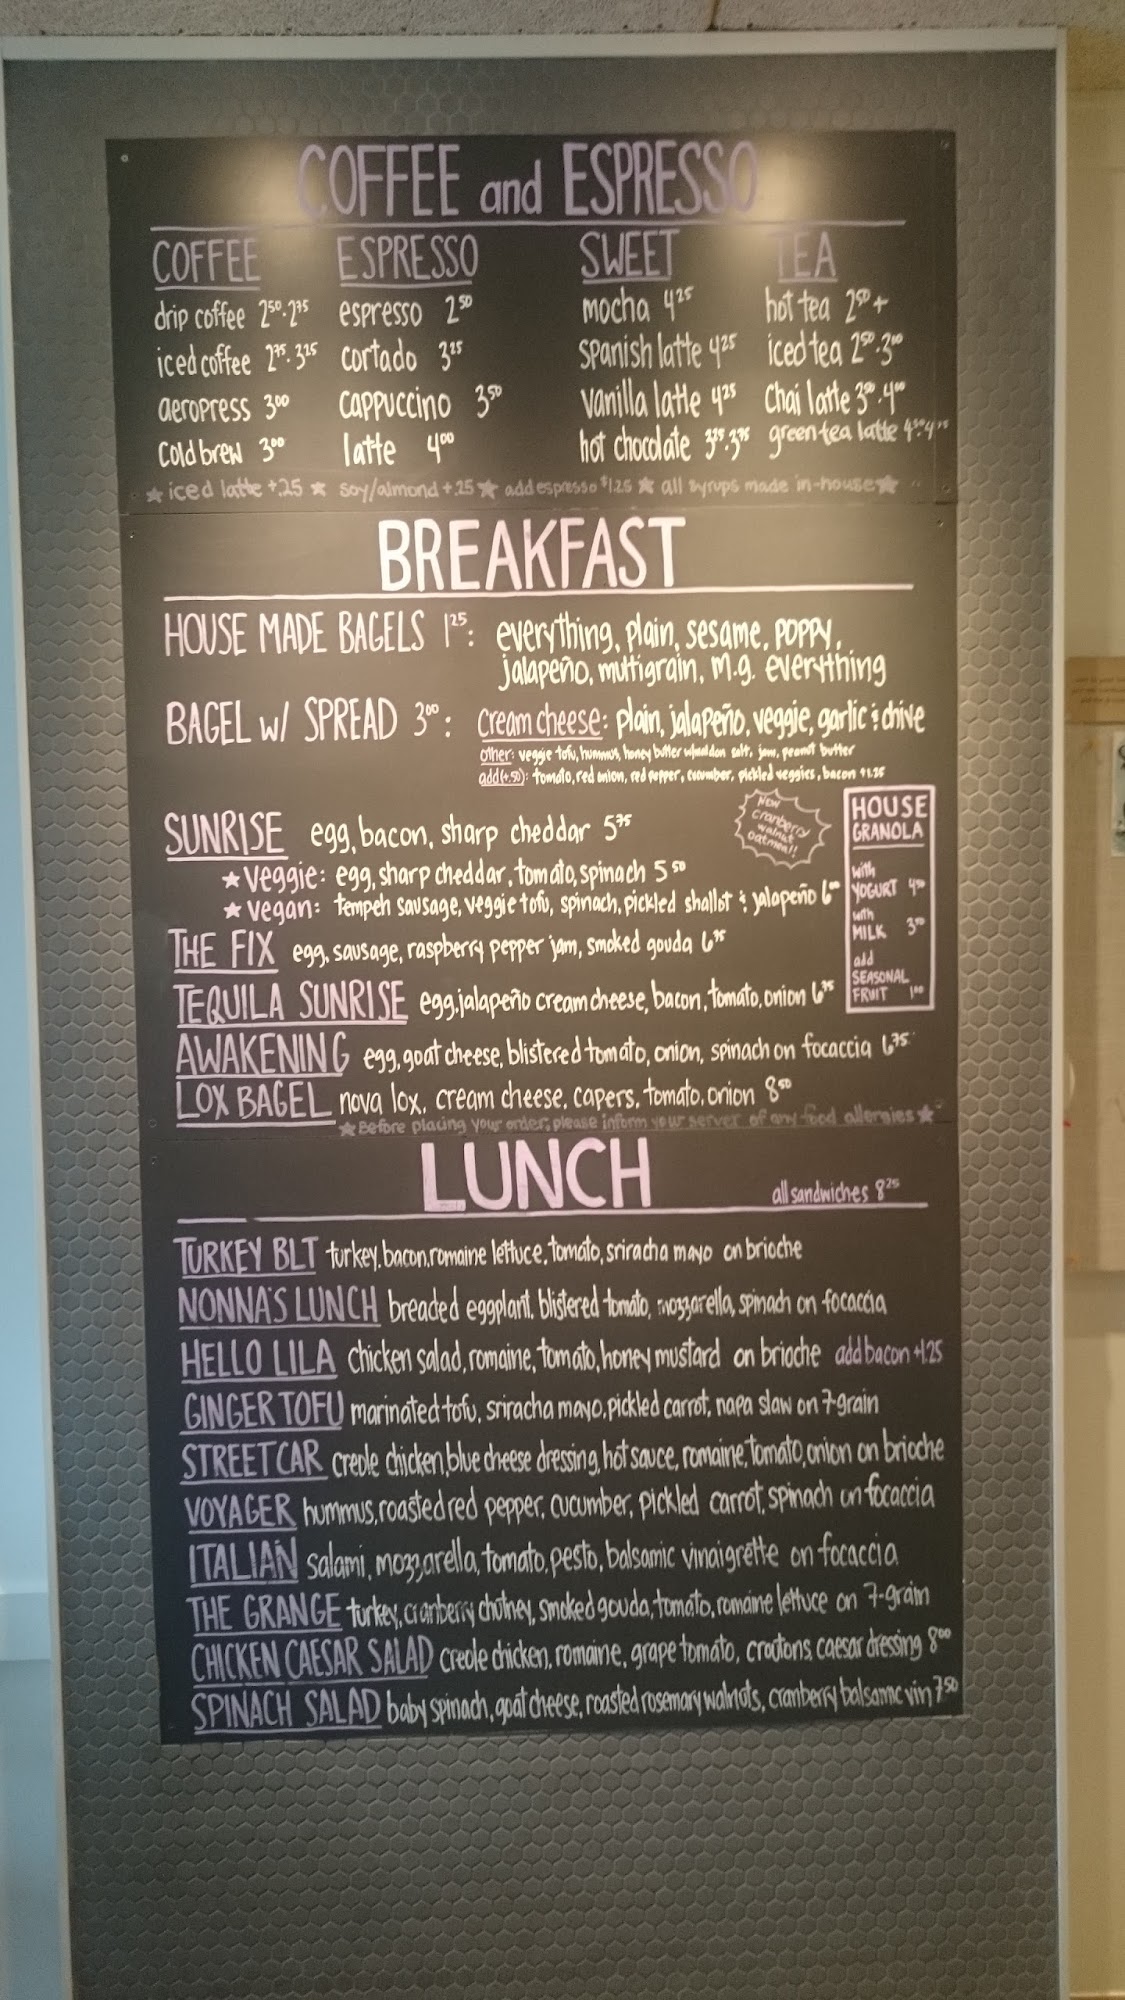 COFFEE and ESPRESSO
COFFEE
drip coffee 2.50 · 2.75
iced coffee 2.75 · 3.25
aeropress 3.00
cold brew 3.00
ESPRESSO
espresso 2.50
cortado 3.25
cappuccino 3.50
latte 4.00
SWEET
mocha 4.25
spanish latte 4.25
vanilla latte 4.25
hot chocolate 3.25 · 3.75
TEA
hot tea 2.50 +
iced tea 2.50 · 3.00
chai latte 3.50 · 4.00
green tea latte
★ iced latte +.25 ★ soy/almond +.25 ★ add espresso $1.25 ★ all syrups made in-house ★
BREAKFAST
HOUSE MADE BAGELS 1.25: everything, plain, sesame, poppy,
jalapeño, multigrain, m.g. everything
BAGEL w/ SPREAD 3.00: cream cheese: plain, jalapeño, veggie, garlic & chive
other: veggie tofu, hummus, honey butter w/ maldon salt, jam, peanut butter
add (+.50): tomato, red onion, red pepper, cucumber, pickled veggies, bacon +1.25
SUNRISE egg, bacon, sharp cheddar 5.75
★ veggie: egg, sharp cheddar, tomato, spinach 5.50
★ vegan: tempeh sausage, veggie tofu, spinach, pickled shallot & jalapeño 6.00
THE FIX egg, sausage, raspberry pepper jam, smoked gouda 6.75
TEQUILA SUNRISE egg, jalapeño cream cheese, bacon, tomato, onion 6.75
AWAKENING egg, goat cheese, blistered tomato, onion, spinach on focaccia 6.75
LOX BAGEL nova lox, cream cheese, capers, tomato, onion 8.50
New
cranberry
walnut
oatmeal!!
HOUSE
GRANOLA
with
YOGURT 4.50
with
MILK 3.50
add
SEASONAL
FRUIT 1.00
★ Before placing your order, please inform your server of any food allergies ★
LUNCH
all sandwiches 8.25
TURKEY BLT turkey, bacon, romaine lettuce, tomato, sriracha mayo on brioche
NONNA'S LUNCH breaded eggplant, blistered tomato, mozzarella, spinach on focaccia
HELLO LILA chicken salad, romaine, tomato, honey mustard on brioche add bacon +1.25
GINGER TOFU marinated tofu, sriracha mayo, pickled carrot, napa slaw on 7-grain
STREETCAR creole chicken, blue cheese dressing, hot sauce, romaine, tomato, onion on brioche
VOYAGER hummus, roasted red pepper, cucumber, pickled carrot, spinach on focaccia
ITALIAN salami, mozzarella, tomato, pesto, balsamic vinaigrette on focaccia
THE GRANGE turkey, cranberry chutney, smoked gouda, tomato, romaine lettuce on 7-grain
CHICKEN CAESAR SALAD creole chicken, romaine, grape tomato, croutons, caesar dressing 8.00
SPINACH SALAD baby spinach, goat cheese, roasted rosemary walnuts, cranberry balsamic vin. 7.50